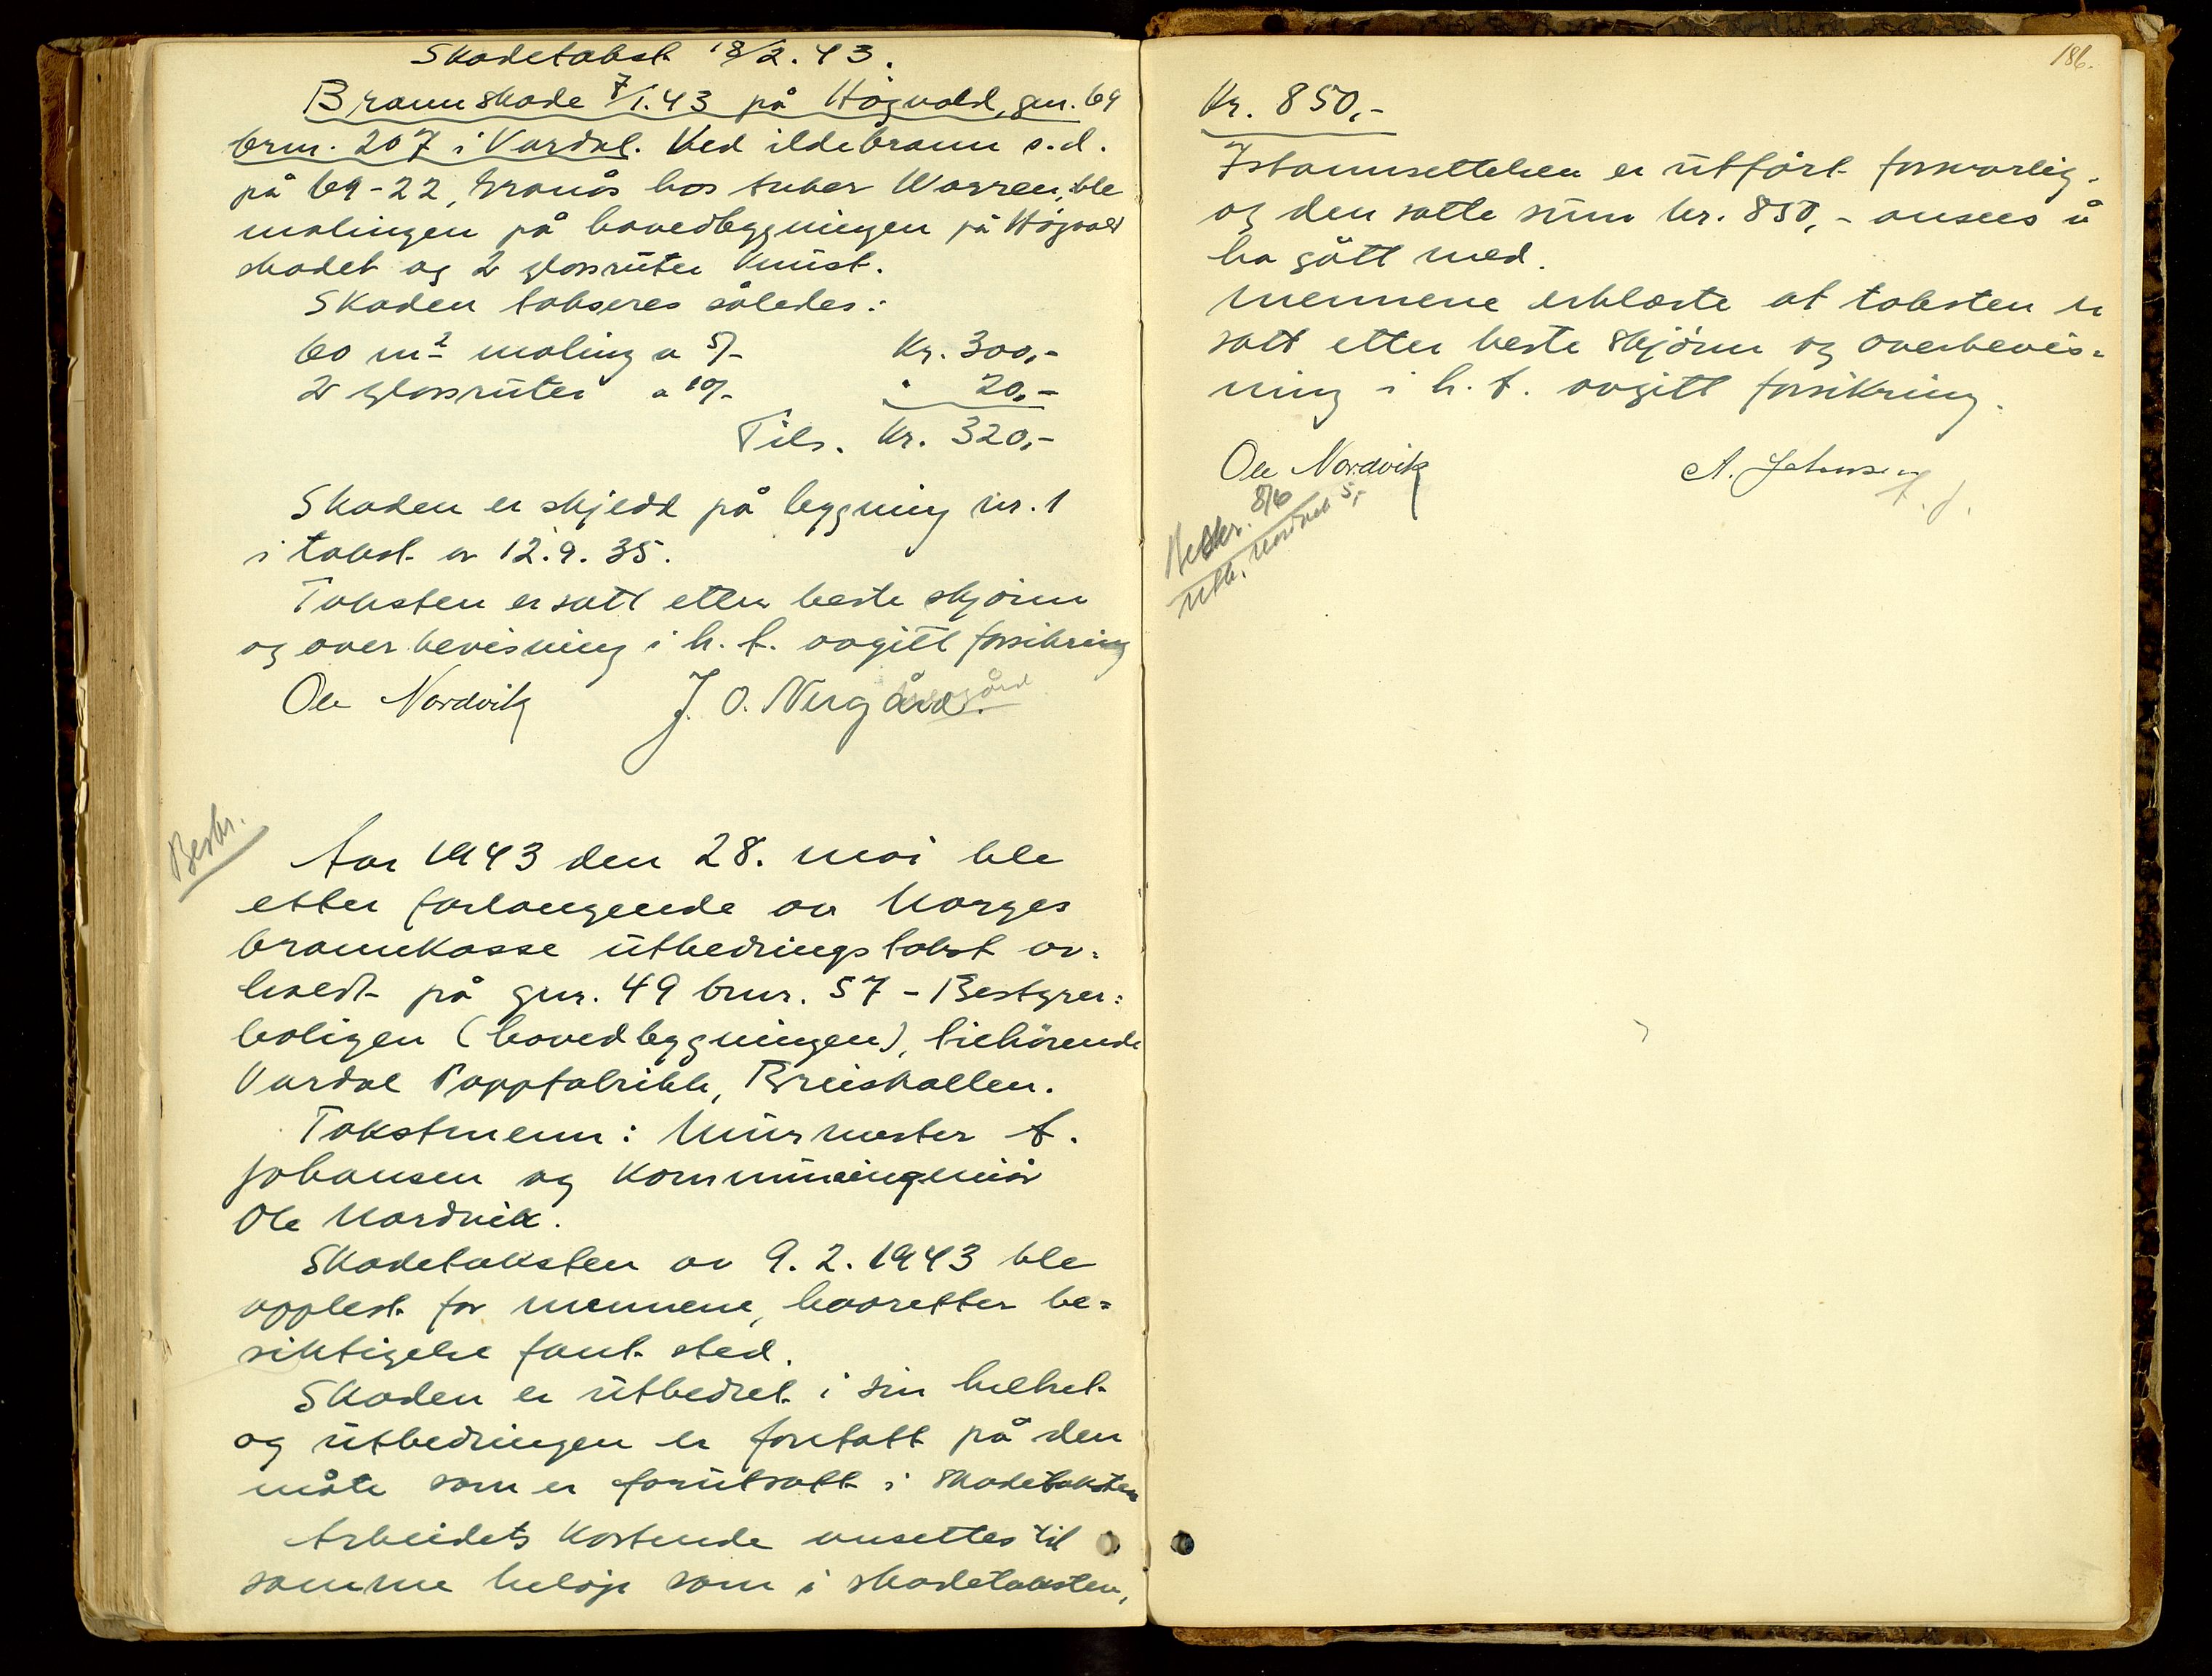 Skadetakst 18/2. 43.
Brannskade 7/1. 43 på Högvold, gnr. 69
brnr. 207 i Vardal. Ved ildebrann s.d.
på 69-22, Granås hos Warren, ble
malingen på hovedbygningen på Högvold
skadet og 2 glassruter knust.
Skaden takseres således:
60 m² maling a 5/- Kr. 300,-
2 glassruter a 10/- " 20,-
Tils. Kr. 320,-
Skaden er skjedd på bygning nr. 1
i takst av 12.9. 35.
Taksten er satt etter beste skjönn
og overbevisning i h. t. avgitt forsikring
Ole Nordvik J. O. Nergård.
Beskr.
Aar 1943 den 28. mai ble
etter forlangende av Norges
brannkasse utbedringstakst av=
holdt på gnr. 49 bnr. 57 - Bestyrer=
boligen (hovedbygningen), tilhörende
Vardal Pappfabrikk, Breiskallen.
Takstmenn: Murmester A.
Johansen og Kommuneingeniör
Ole Nordvik.
Skadetaksten av 9. 2. 1943 ble
opplest for mennene, hvoretter be=
siktigelse fant sted.
Skaden er utbedret i sin helhet
og utbedringen er foretatt på den
måte som er forutsatt i skadetaksten
Arbeidets kostende ansettes til
samme belöp som i skadetaksten,
186.
Kr. 850,-
Istannsettelsen er utfört forsvarlig.
og den satte sum kr. 850,- ansees å
ha gått med.
Mennene erklærte at taksten er
satt etter beste skjönn og overbevis=
ning i h. t. avgitt forsikring.
Ole Nordvik A. Johansen
Beskr. 8/6
Utb. Nordvik 5,-